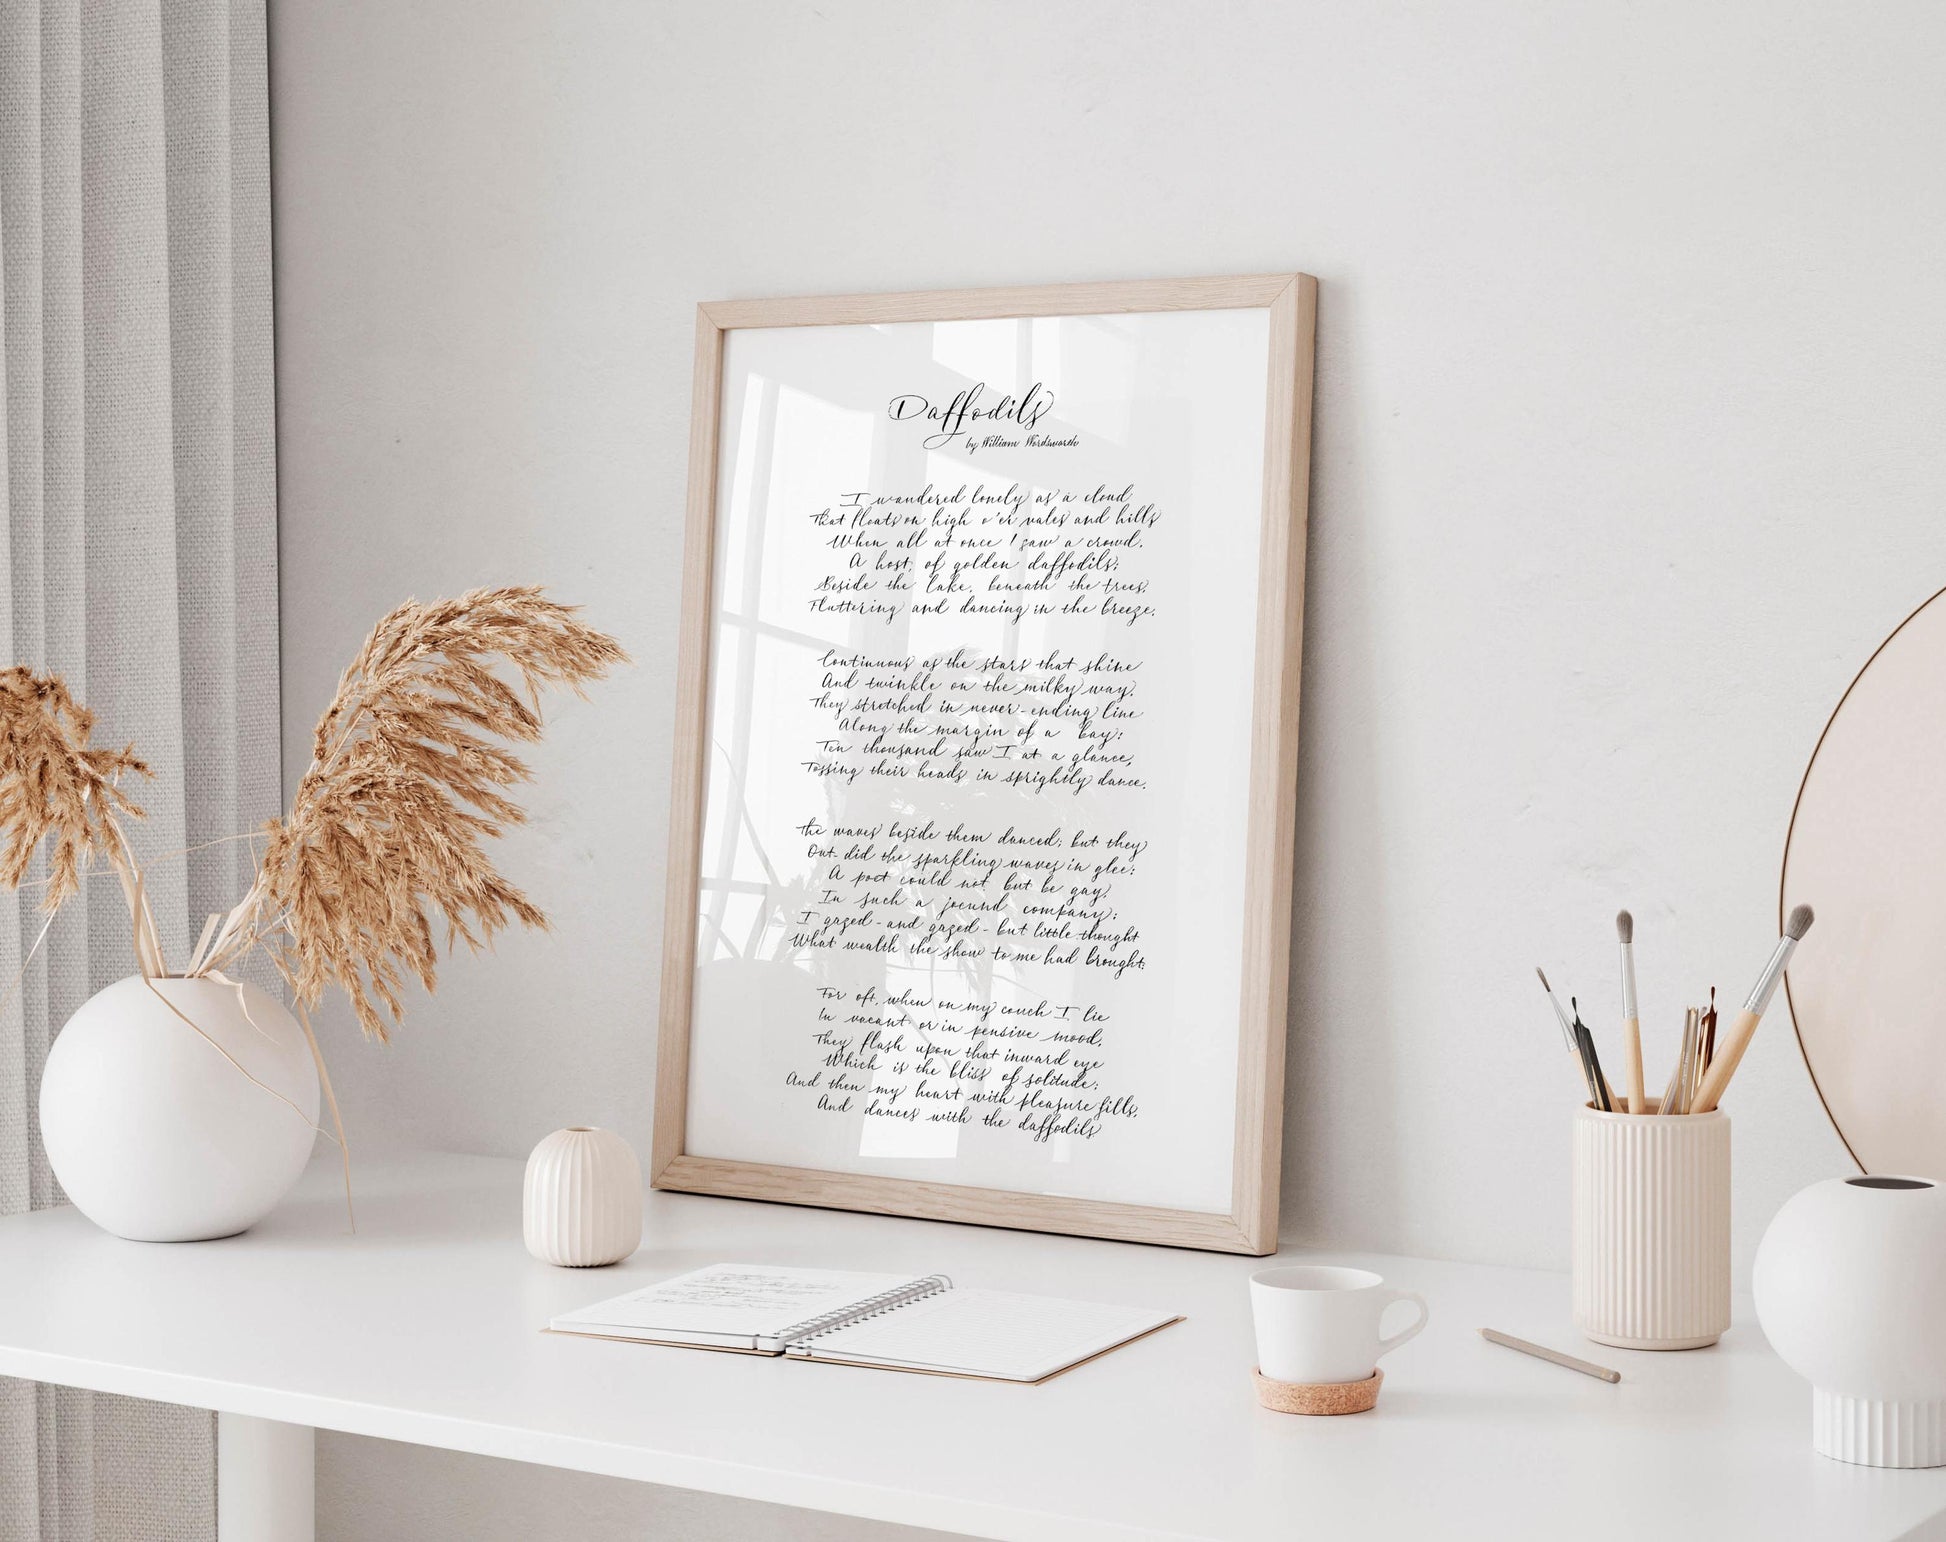 Daffodils
by William Wordsworth
I wandered lonely as a cloud
That floats on high o'er vales and hills
When all at once I saw a crowd,
A host, of golden daffodils;
Beside the lake, beneath the trees,
Fluttering and dancing in the breeze.
Continuous as the stars that shine
And twinkle on the milky way,
They stretched in never-ending line
Along the margin of a bay:
Ten thousand saw I at a glance,
Tossing their heads in sprightly dance.
The waves beside them danced; but they
Out-did the sparkling waves in glee:
A poet could not but be gay,
In such a jocund company:
I gazed - and gazed - but little thought
What wealth the show to me had brought:
For oft, when on my couch I lie
In vacant or in pensive mood,
They flash upon that inward eye
Which is the bliss of solitude;
And then my heart with pleasure fills,
And dances with the daffodils.